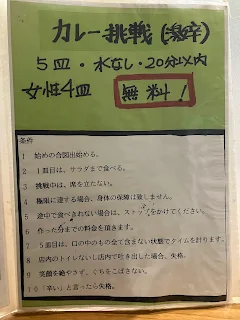 カレー挑戦(激辛)
5皿・水なし・20分以内
女性4皿 無料!
条件
1 始めの合図出始める。
2 1皿目は、サラダまで食べる。
3 挑戦中は、席を立たない。
4 極限に達する場合、身体の保障は致しません。
5 途中で食べきれない場合は、ストップをかけてください。
6 作った分までの料金を頂きます。
7 5皿目は、口の中のもの全て含まない状態でタイムを計ります。
8 店内のトイレないし店内で吐き出した場合、失格。
9 笑顔を絶やさず、ぐちをこぼさない。
10 「辛い」と言ったら失格。